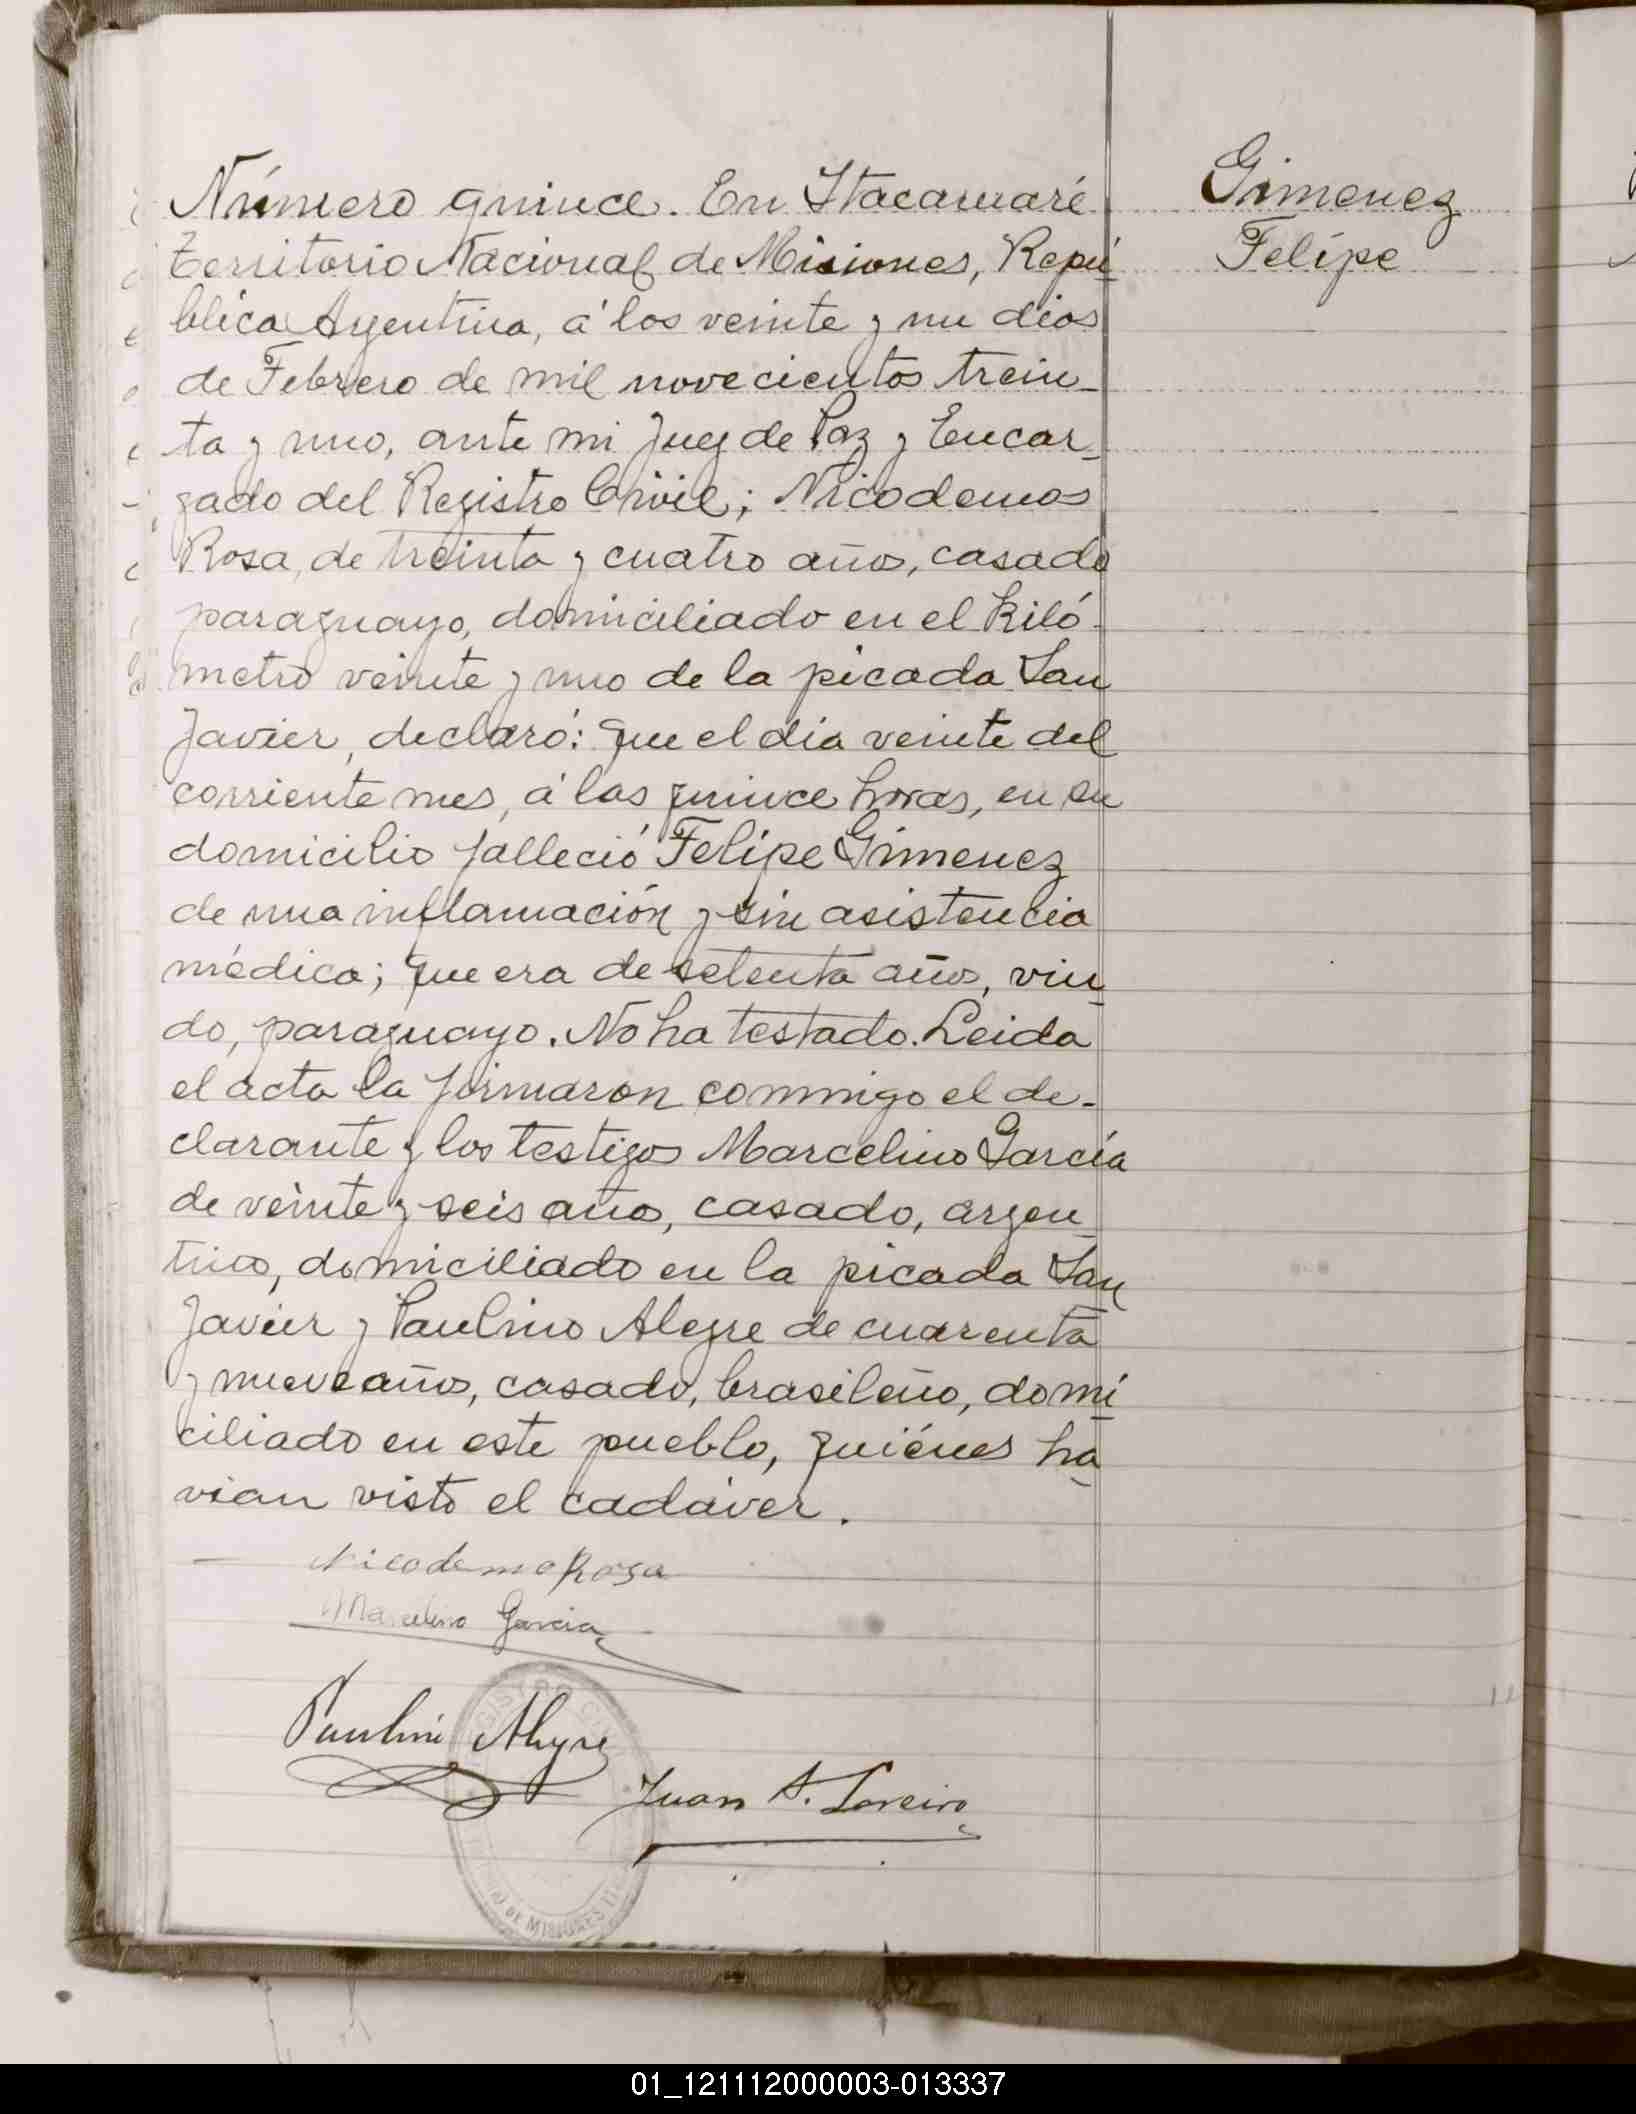 Número quince. En Itacaruaré
Gimenez
Territorio Nacional de Misiones, Repú
Felipe
blica Argentina, á los veinte y un dias
de Febrero de mil novecientos trein-
ta y uno, ante mi Juez de Paz y Encar-
gado del Registro Civil; Nicodemos
Rosa, de treinta y cuatro años, casado
paraguayo, domiciliado en el Kiló-
metro veinte y uno de la picada San
Javier, declaró: que el dia veinte del
corriente mes, á las quince horas, en su
domicilio falleció Felipe Gimenez
de una inflamación y sin asistencia
médica; que era de setenta años, viu-
do, paraguayo. No ha testado. Leida
el acta la firmaron conmigo el de-
clarante y los testigos Marcelino García
de veinte y seis años, casado, argen-
tino, domiciliado en la picada San
Javier y Paulino Alegre de cuarenta
y nueve años, casado, brasileño, domi
ciliado en este pueblo, quiénes ha
vian visto el cadáver.
Nicodemo Rosa
Marcelino Garcia
Paulino Alegre
Juan A. Loreiro
DE MISIONES
01_121112000003-013337